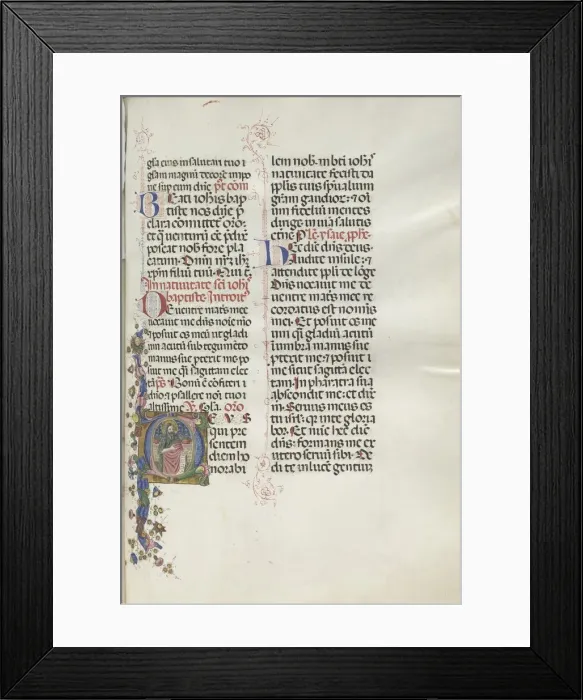 gl'a eius in salutari tuo ⁊
gl'am magnū decorē impo
ne sup eum dn̄e pꝰ com̄
Beati ioh'is bap
tiste nos dn̄e p̄
clara comitet oro:
et quentum ce pdix̄
poscat nob' fore pla
catum. Dnm̄ nr̄z ih'z
xp̄m filiū tuū. Qui t̄.
In natiuitate sc̄i ioh'
baptiste. Introit'
De uentre matris mee
uocauit me dn̄s noīe mō
⁊ posuit os meū ut gladi
um acutū sub tegumēto
manus sue protexit me po
suit me q̄i sagittam elec
tā. pꝰ Bonū ē confiteri
dn̄o ⁊ psallere noī tuo
altissime. Gl'a. oro
DEVS
qui pre
sentem
diem ho
norabi
lem nob' in bt̄i ioh'is
natiuitate fecisti da
pp̄lis tuis sp̄ualium
gr̄am gaudioꝝ: ⁊ oī
um fidelium mentes
dirige in uiā salutis
etn̄e. P Lc̄. ysaie pph̄e.
Hec dic̄ dn̄s deus.
Audite insule: ⁊
attendite pp̄li de lōge
Dn̄s uocauit me de
uentre matris mee re
cordatus est nominis
mei. Et posuit os me
um q̄i gladiū acutū
in umbra manus sue
protexit me: ⁊ posuit
me sicut sagittā elec
tam. In pharatra sua
abscondit me: et dix̄
m̄. Seruus meus es
tu isrl': q̄r in te gloria
bor. Et nūc hec dic̄
dn̄s: formans me ex
utero seruū sibi. De
di te in lucē gentium